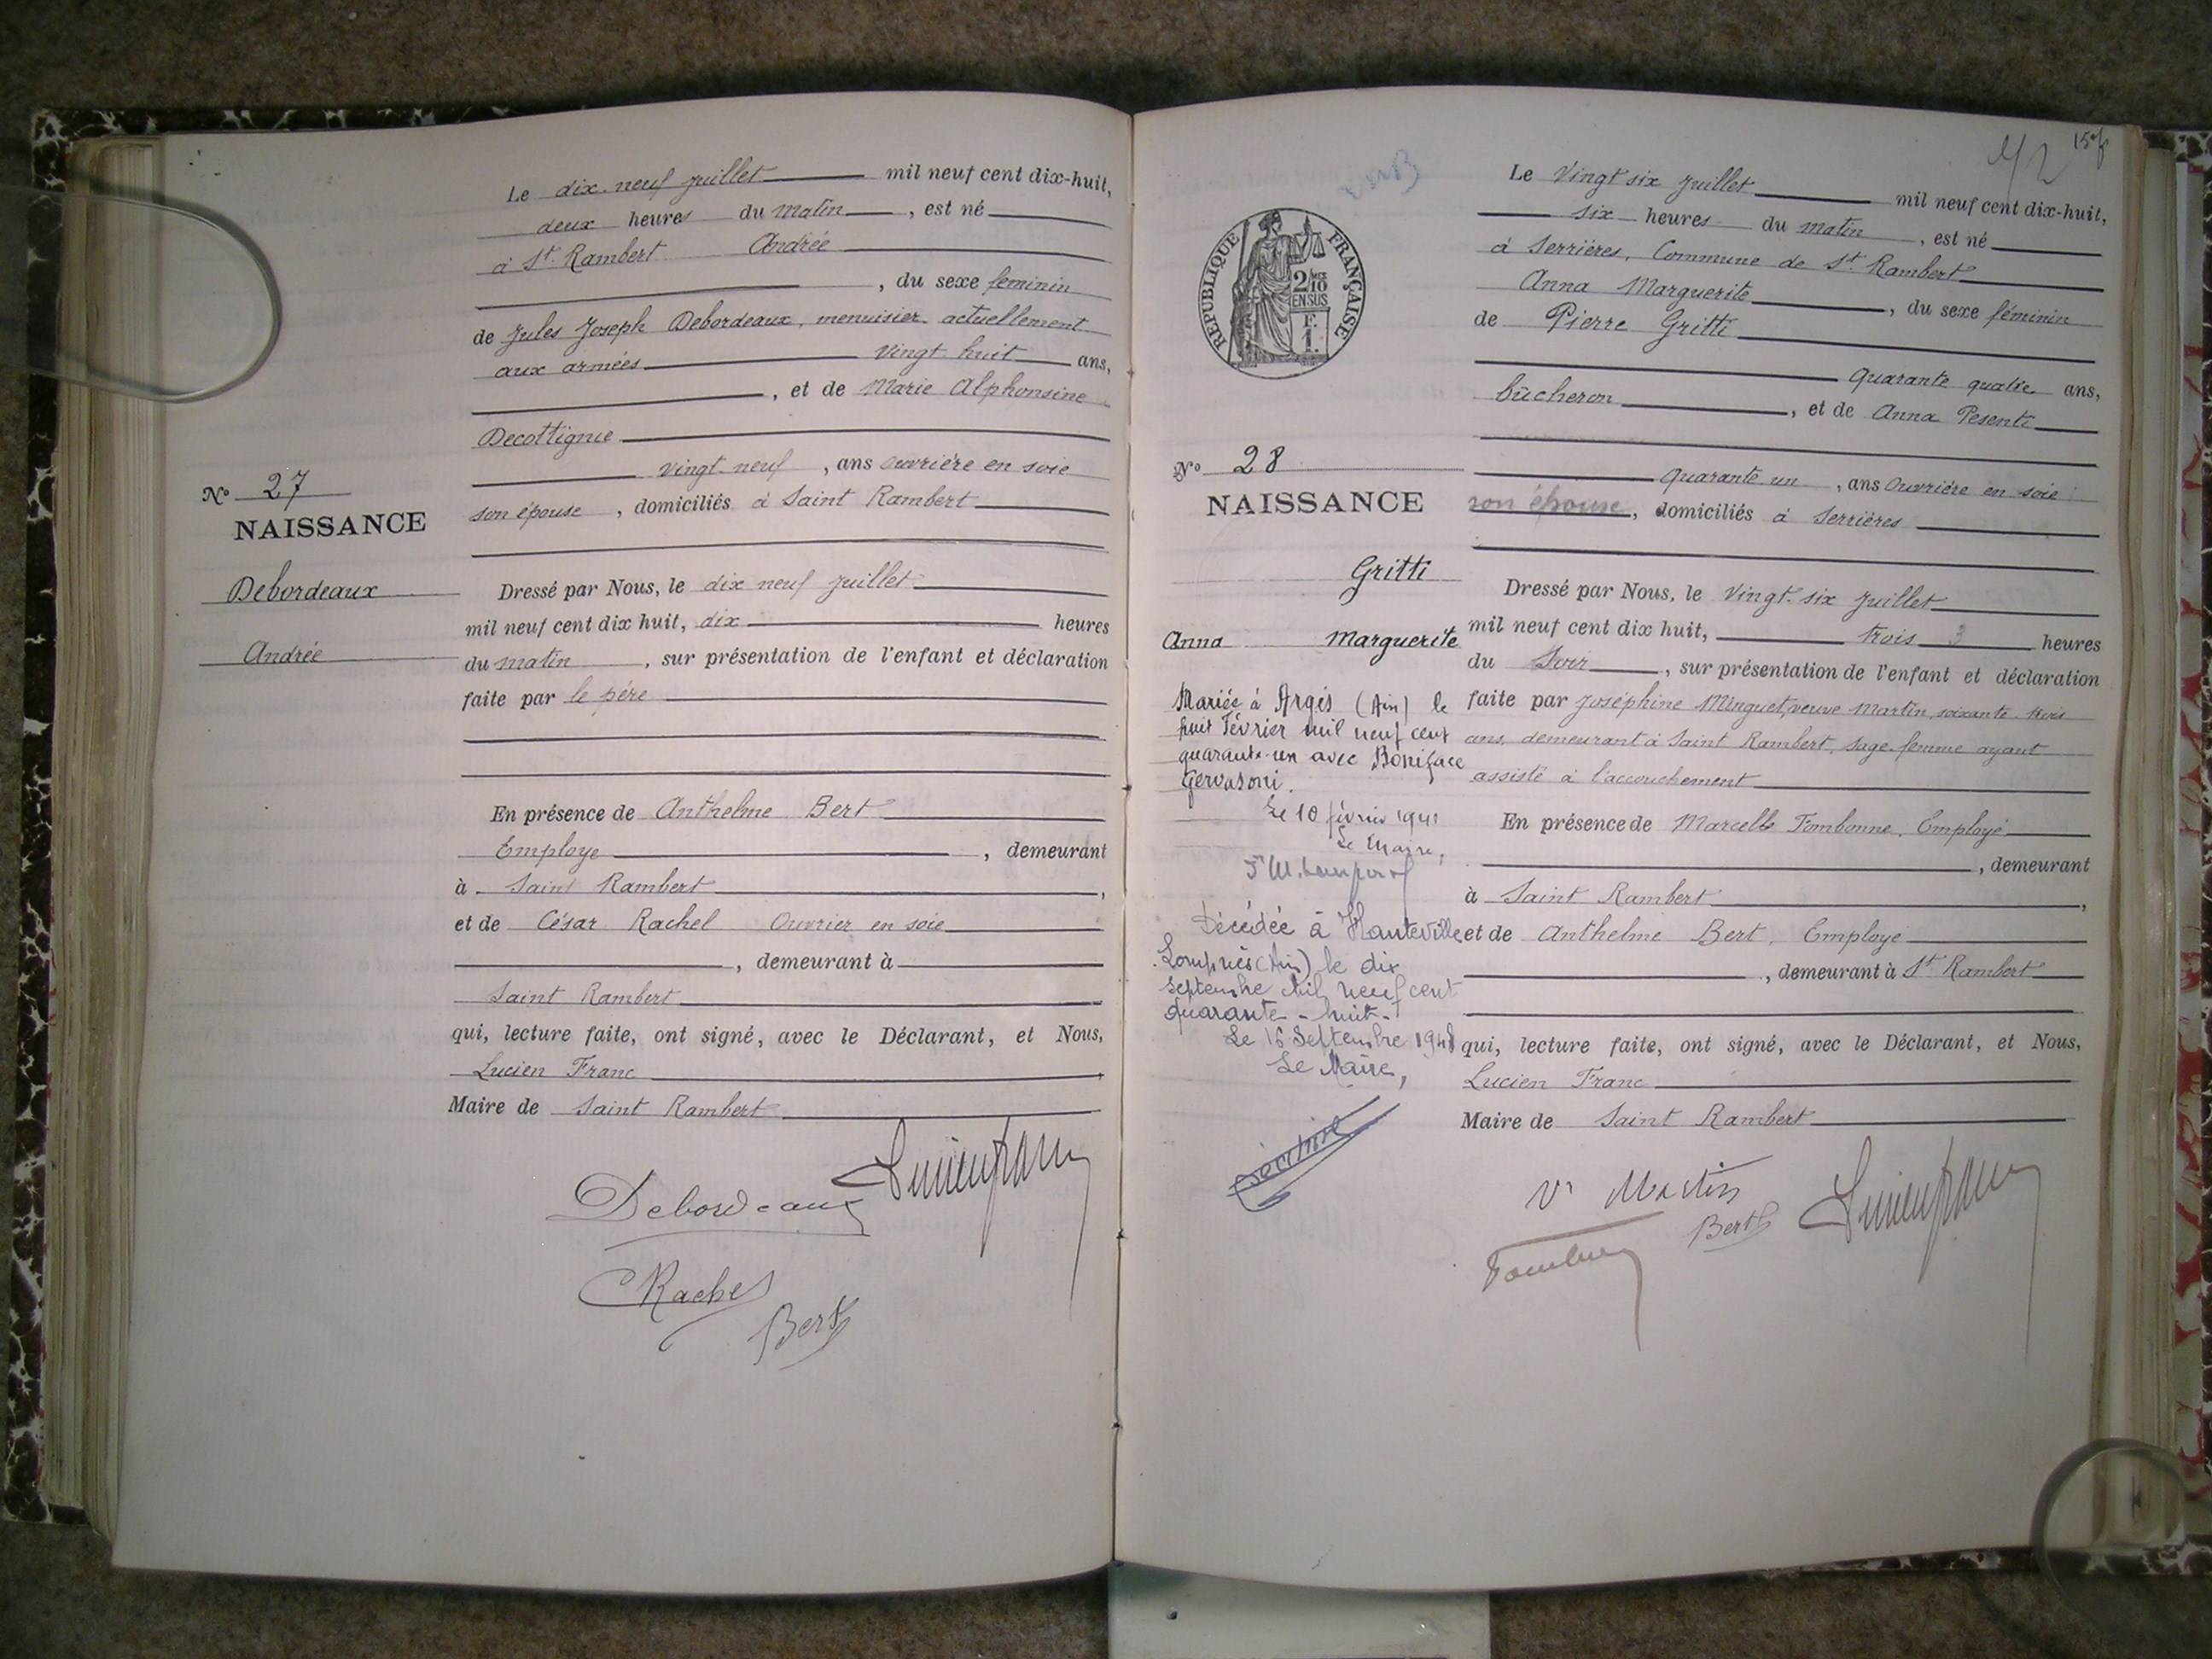 Le dix-neuf Juillet mil neuf cent dix-huit,
deux heures du matin, est né
à St Rambert Andrée
, du sexe féminin
de Jules Joseph Debordeaux, menuisier actuellement
aux armées vingt huit ans,
, et de Marie Alphonsine
Decottignie
vingt-neuf, ans Ouvrière en soie
son épouse, domiciliés à Saint Rambert
No 27
NAISSANCE
Debordeaux
Andrée
Dressé par Nous, le dix neuf Juillet
mil neuf cent dix huit, dix heures
du matin, sur présentation de l'enfant et déclaration
faite par le père
En présence de Anthelme Bert
Employé, demeurant
à Saint Rambert,
et de César Rachel Ouvrier en soie
, demeurant à
Saint Rambert
qui, lecture faite, ont signé, avec le Déclarant, et Nous,
Lucien Franc
Maire de Saint Rambert
Debordeaux
Lucien Franc
CRachel
Bert
15 f
RÉPUBLIQUE FRANÇAISE
2/10
EN SUS
F.
1.
Le Vingt six Juillet mil neuf cent dix-huit,
six heures du matin, est né
à Serrières, Commune de St Rambert
Anna Marguerite, du sexe féminin
de Pierre Gritti
Quarante quatre ans,
bûcheron, et de Anna Pesenti
Quarante un, ans Ouvrière en soie
son épouse, domiciliés à Serrières
No 28
NAISSANCE
Gritti
Anna Marguerite
Mariée à Argis (Ain) le
huit Février mil neuf cent
quarante-un avec Boniface
Gervasoni.
Le 10 février 1941
Le Maire,
Décédée à Hauteville
Lompnès (Ain) le dix
Septembre mil neuf cent
quarante-huit-
Le 16 Septembre 1948
Le Maire,
Dressé par Nous, le Vingt-six Juillet
mil neuf cent dix huit, trois 3 heures
du Soir, sur présentation de l'enfant et déclaration
faite par Joséphine Minguet, veuve Martin, soixante trois
ans, demeurant à Saint Rambert, sage-femme ayant
assisté à l'accouchement
En présence de Marcelle Tombonne, Employé
, demeurant
à Saint Rambert,
et de Anthelme Bert, Employé
, demeurant à St Rambert
qui, lecture faite, ont signé, avec le Déclarant, et Nous,
Lucien Franc
Maire de Saint Rambert
Ve Martin
Bert
Lucien Franc